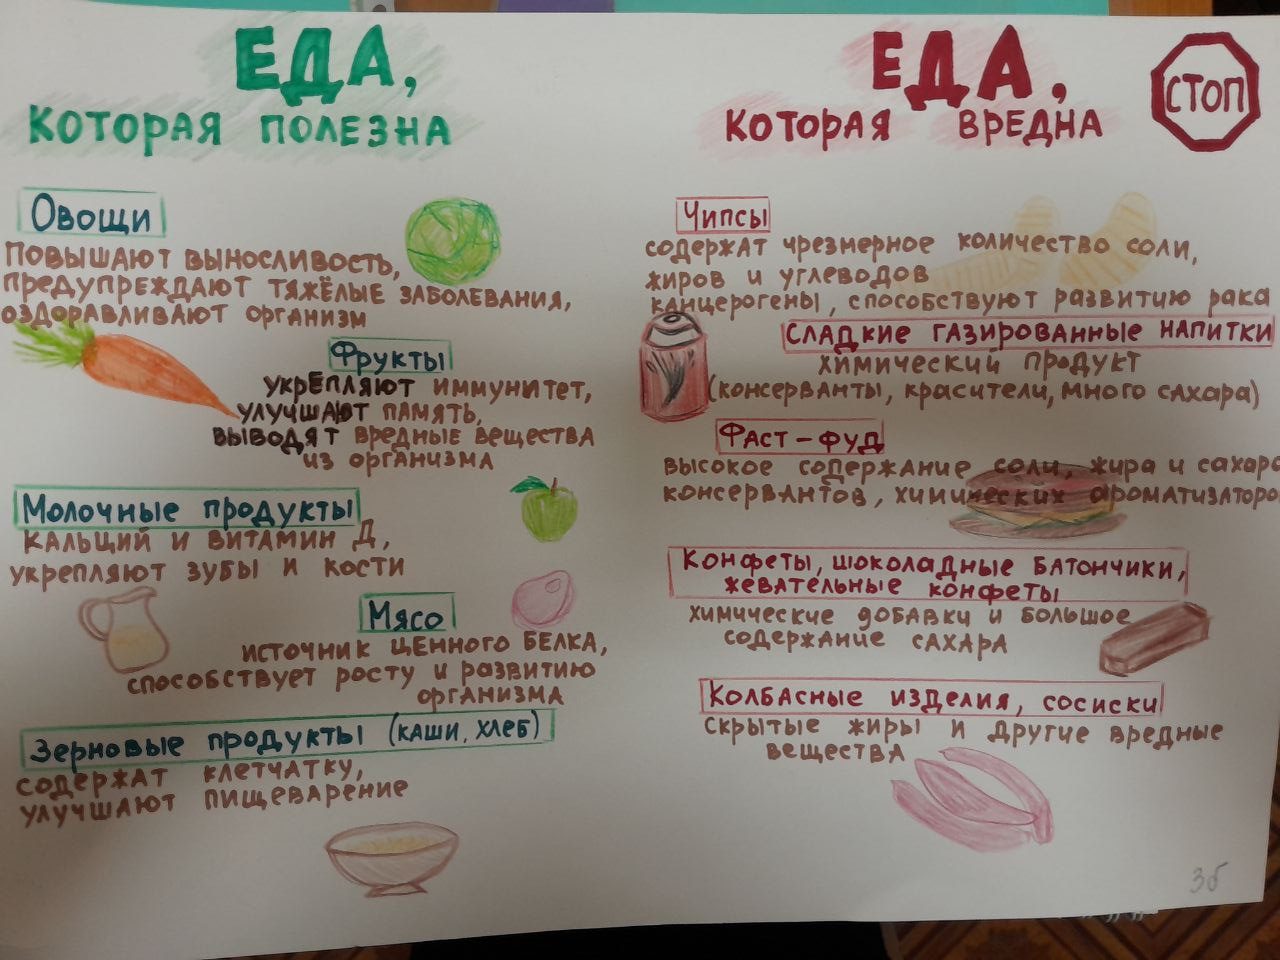 ЕДА,
КОТОРАЯ ПОЛЕЗНА
Овощи
ПОВЫШАЮТ ВЫНОСЛИВОСТЬ,
ПРЕДУПРЕЖДАЮТ ТЯЖЁЛЫЕ ЗАБОЛЕВАНИЯ,
ОЗДОРАВЛИВАЮТ ОРГАНИЗМ
Фрукты
УКРЕПЛЯЮТ ИММУНИТЕТ,
УЛУЧШАЮТ ПАМЯТЬ,
ВЫВОДЯТ ВРЕДНЫЕ ВЕЩЕСТВА
ИЗ ОРГАНИЗМА
Молочные продукты
КАЛЬЦИЙ И ВИТАМИН Д,
УКРЕПЛЯЮТ ЗУБЫ И КОСТИ
Мясо
ИСТОЧНИК ЦЕННОГО БЕЛКА,
СПОСОБСТВУЕТ РОСТУ И РАЗВИТИЮ
ОРГАНИЗМА
Зерновые продукты (каши, хлеб)
СОДЕРЖАТ КЛЕТЧАТКУ,
УЛУЧШАЮТ ПИЩЕВАРЕНИЕ
ЕДА,
КОТОРАЯ ВРЕДНА
СТОП
Чипсы
СОДЕРЖАТ ЧРЕЗМЕРНОЕ КОЛИЧЕСТВО СОЛИ,
ЖИРОВ И УГЛЕВОДОВ
КАНЦЕРОГЕНЫ, СПОСОБСТВУЮТ РАЗВИТИЮ РАКА
Сладкие газированные напитки
ХИМИЧЕСКИЙ ПРОДУКТ
(КОНСЕРВАНТЫ, КРАСИТЕЛИ, МНОГО САХАРА)
Фаст-фуд
ВЫСОКОЕ СОДЕРЖАНИЕ СОЛИ, ЖИРА И САХАРА
КОНСЕРВАНТОВ, ХИМИЧЕСКИХ АРОМАТИЗАТОРО
Конфеты, шоколадные батончики,
жевательные конфеты
ХИМИЧЕСКИЕ ДОБАВКИ И БОЛЬШОЕ
СОДЕРЖАНИЕ САХАРА
Колбасные изделия, сосиски
СКРЫТЫЕ ЖИРЫ И ДРУГИЕ ВРЕДНЫЕ
ВЕЩЕСТВА
3б